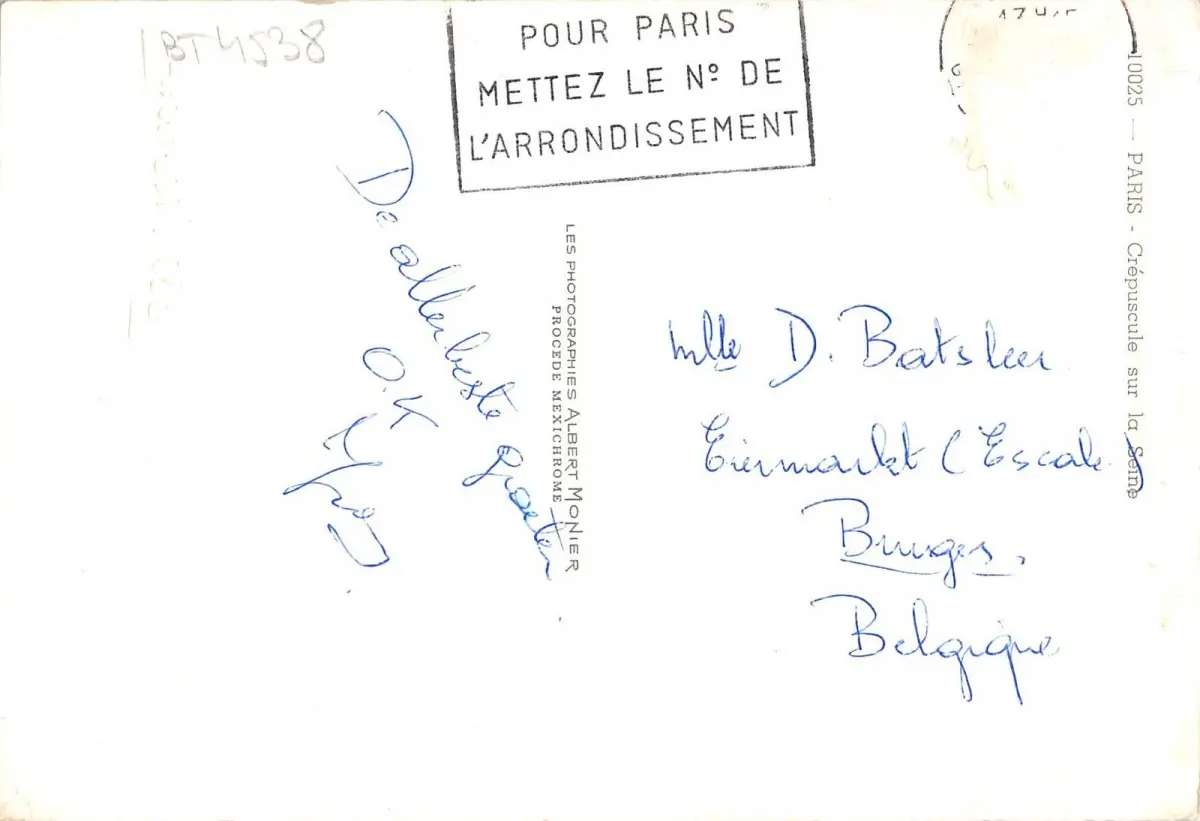 BT4538
POUR PARIS
METTEZ LE Nº DE
L'ARRONDISSEMENT
De allerbeste groeten
O.K
LES PHOTOGRAPHIES ALBERT MONIER
PROCEDE MEXICHROME
Mlle D. Batsleer
Eiermarkt (Escale)
Bruges.
Belgique
10025 — PARIS - Crépuscule sur la Seine